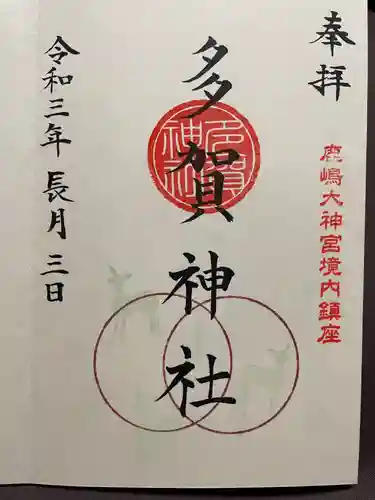 奉拝
鹿嶋大神宮境内鎮座
多賀神社
多賀神社
令和三年 長月 三日